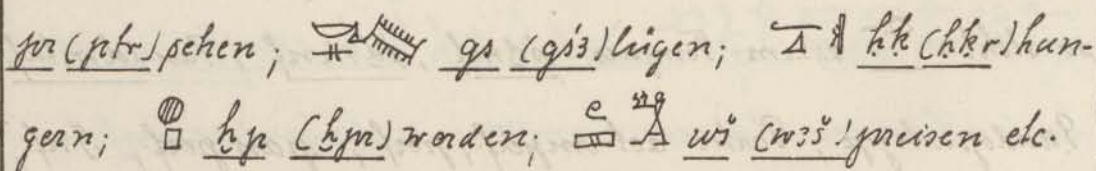 pr (ptr) sehen; gs (gś3) lügen; ḥḳ (ḥḳr) hun-
gern; 𓐍𓊪 ḫp (ḫpr) werden; wš (w3š) preisen etc.